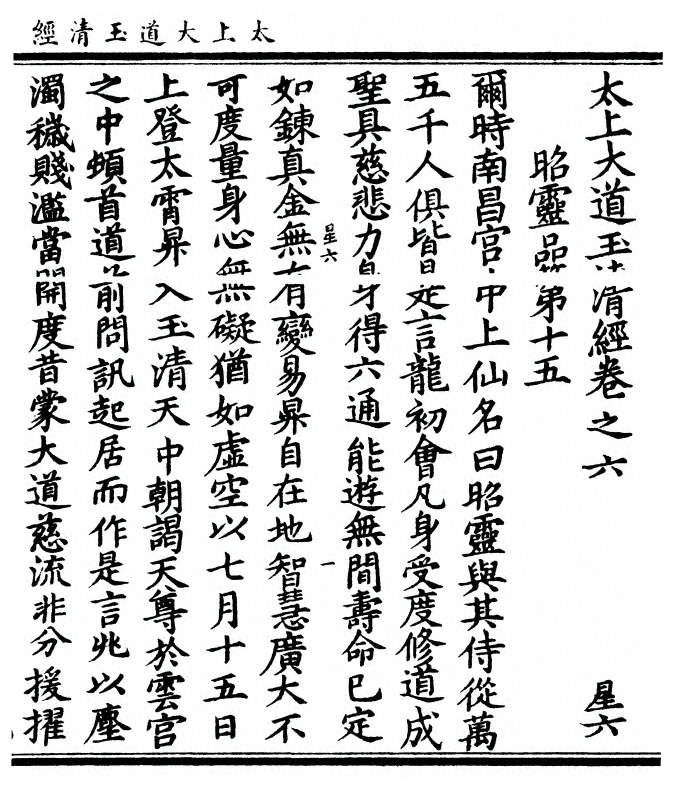 太上大道玉清經
太上大道玉清經卷之六 星六
昭靈品第十五
爾時南昌宮中上仙名曰昭靈與其侍從萬
五千人俱皆是延言龍初會凡身受度修道成
聖具慈悲力身得六通能遊無間壽命已定
星六 一
如鍊真金無有變易昇自在地智慧廣大不
可度量身心無礙猶如虛空以七月十五日
上登太霄昇入玉清天中朝謁天尊於雲宮
之中頫首道前問訊起居而作是言兆以塵
濁穢賤濫當開度昔蒙大道慈流非分援擢